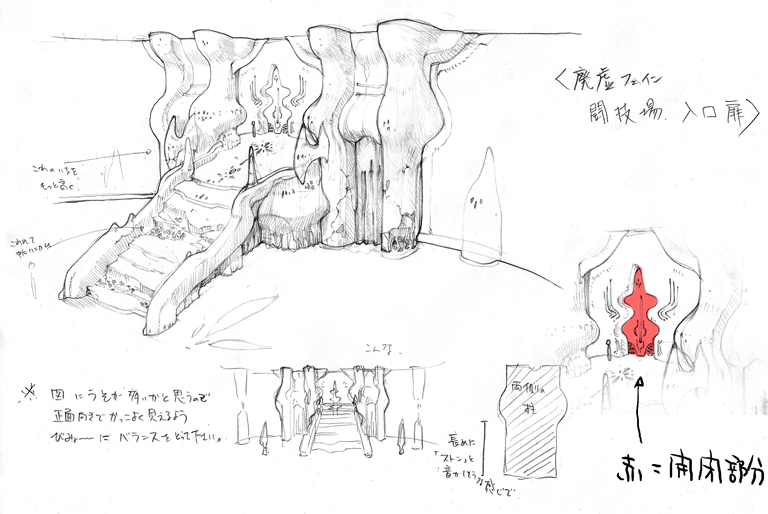 〈廃虚フェイン
闘技場 入口扉〉
これのいちを
もっと高く
こんな
※ 図にうそが多いかと思うので
正面向きでかっこよく見えるよう
びみょ〜にバランスをとって下さい。
両側の
柱
長めに
「ストン」と
感じで
赤＝開閉部分